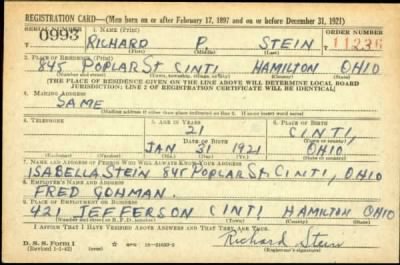 REGISTRATION CARD—(Men born on or after February 17, 1897 and on or before December 31, 1921)
SERIAL NUMBER 1. NAME (Print) ORDER NUMBER
0993 RICHARD P. STEIN 11236
(First) (Middle) (Last)
2. PLACE OF RESIDENCE (Print)
845 POPLAR ST CINTI HAMILTON OHIO
(Number and street) (Town, township, village, or city) (County) (State)
[THE PLACE OF RESIDENCE GIVEN ON THE LINE ABOVE WILL DETERMINE LOCAL BOARD
JURISDICTION; LINE 2 OF REGISTRATION CERTIFICATE WILL BE IDENTICAL]
3. MAILING ADDRESS
SAME
[Mailing address if other than place indicated on line 2. If same insert word same]
4. TELEPHONE 5. AGE IN YEARS 6. PLACE OF BIRTH
21 CINTI,
DATE OF BIRTH
JAN 31 1921 OHIO
(Mo.) (Day) (Yr.)
7. NAME AND ADDRESS OF PERSON WHO WILL ALWAYS KNOW YOUR ADDRESS
ISABELLA STEIN 845 POPLAR ST. CINTI, OHIO
8. EMPLOYER'S NAME AND ADDRESS
FRED GOHMAN.
9. PLACE OF EMPLOYMENT OR BUSINESS
421 JEFFERSON CINTI HAMILTON OHIO
(Number and street or R. F. D. number) (Town) (County) (State)
I AFFIRM THAT I HAVE VERIFIED ABOVE ANSWERS AND THAT THEY ARE TRUE.
D. S. S. Form 1
(Revised 1-1-42) (over)
Richard Stein
(Registrant's signature)